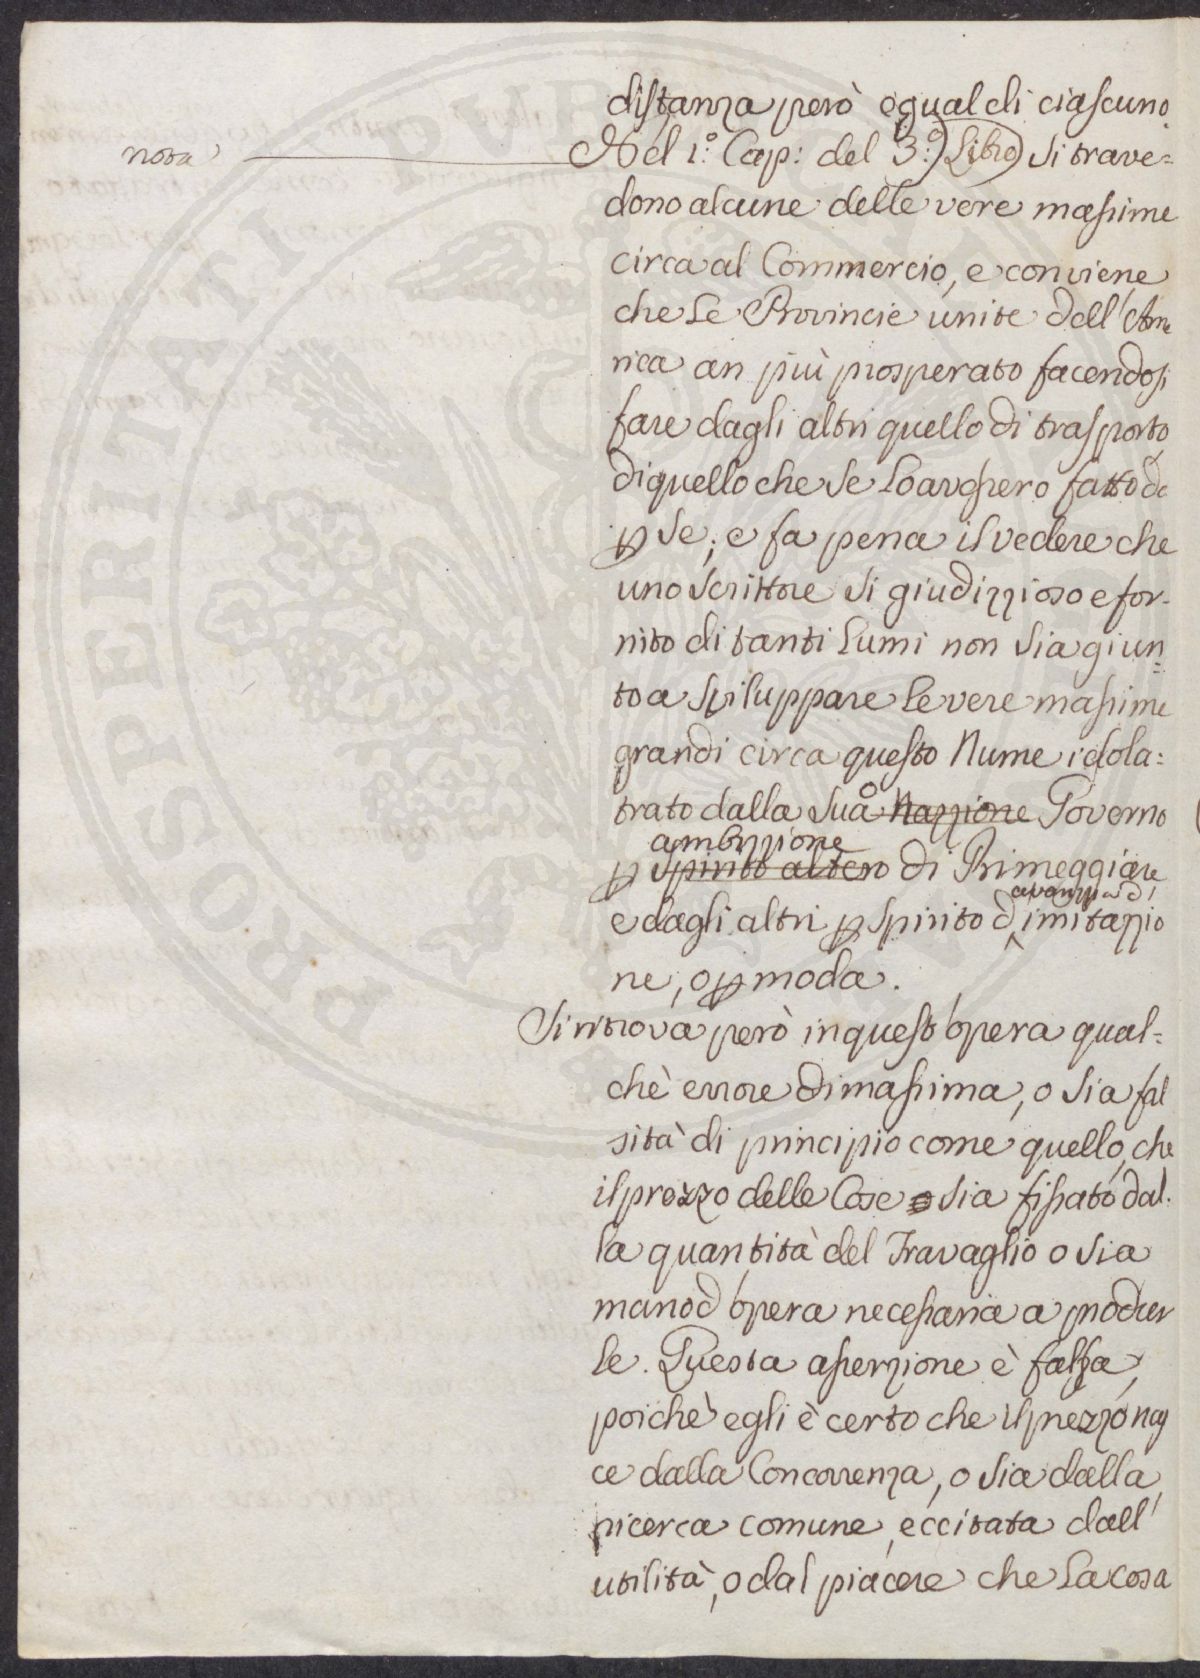 distanza però egual di ciascuno.
nota
Nel 1.º Cap: del 3.º Libro si trave=
dono alcune delle vere massime
circa al Commercio, e conviene
che le Provincie unite dell'Ame
rica an più prosperato facendosi
fare dagli altri quello di trasporto,
di quello che se lo avessero fatto da
p se; e fa pena il vedere che
uno scrittore si giudizzioso e for-
nito di tanti lumi non sia giun=
to a sviluppare le vere massime
grandi circa questo Nume idola:
trato dalla suo Nazzione Governo
ambizzione
p spirito altero di Primeggiare
avanza di
e dagli altri p spirito d imitazzio
ne, o p moda.
Si ritrova però in quest'opera qual=
chè errore di massima, o sia fal
sità di principio come quello, che
il prezzo delle Cose sia fissato dal=
la quantità del Travaglio o sia
mano d'opera necessaria a produr
le. Questa asserzione è falsa,
poichè egli è certo che il prezzo nas
ce dalla Concorrenza, o sia dalla
ricerca comune, eccitata dall'
utilità, o dal piacere che la cosa